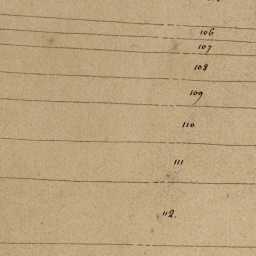 106
107
108
109
110
111
112.